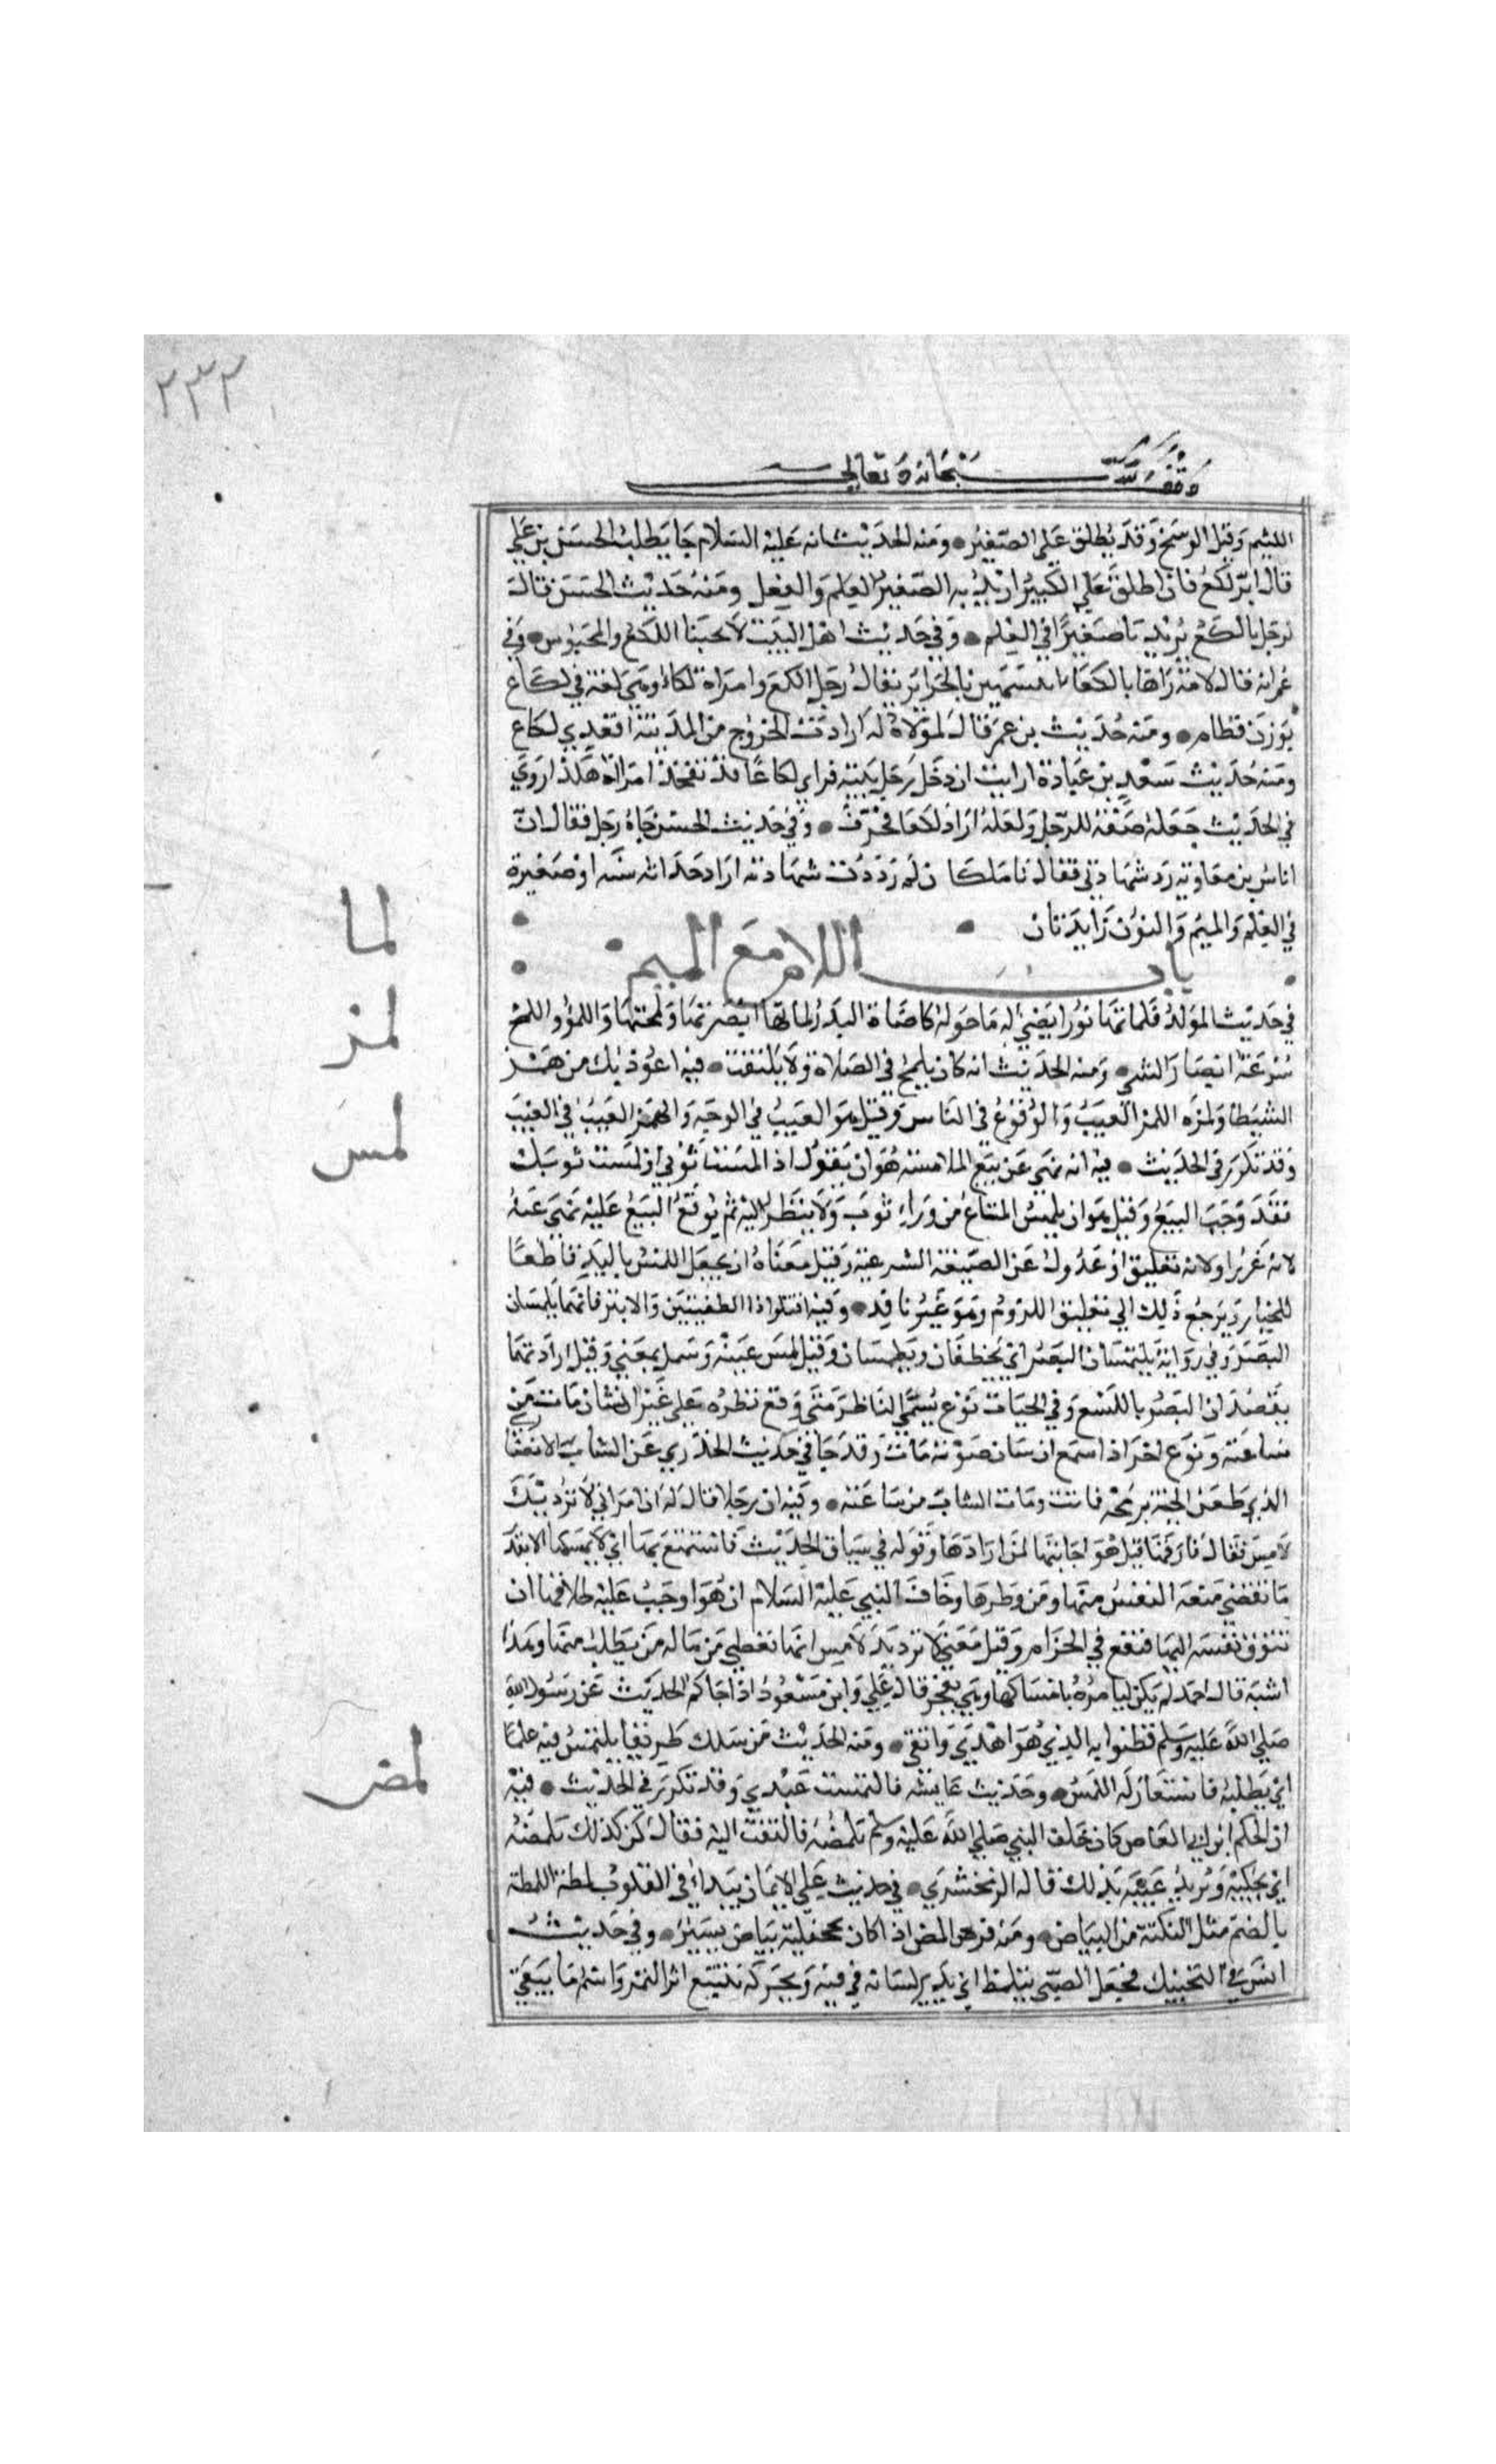 ٢٣٢
وقف لله سبحانه وتعالى
اللئيم وقيل الوسخ وقد يطلق على الصغير ومنه الحديث انه عليه السلام جا يطلب الحسن بن علي
قال اثم لكع فان اطلق على الكبير اريد به الصغير العلم والعقل ومنه حديث الحسن قال
لرجل يا لكع يريد يا صغيرا في العلم وفي حديث اهل البيت لا يحبنا اللكع والمحيوس وفي
عمر انه قال لامة راها يا لكعا اتتشبهين بالحراير يقال رجل الكع وامراة لكعا وهي لغة في لكاع
بوزن قطام ومنه حديث بن عمر قال لمولاة له ارادت الخروج من المدينة اقعدي لكاع
ومنه حديث سعد بن عبادة ارايت ان دخل رجل بيته فراى لكاعا قد تفخذ امراته هكذا روي
في الحديث جعله صفة للرجل ولعله اراد لكعا فحرف وفي حديث الحسن جاه رجل فقال ان
اياس بن معاوية رد شهادتي فقال يا ملكعان لم رددت شهادته اراد حداثة سنه او صغيرة
في العلم والميم والنون زايدتان
باب اللام مع الميم
لما
في حديث المولد فلماتها نورا يضيء له ما حوله كاضاة البدر لماتها ابصرتها ولمحتها واللمؤ واللمح
سرعة ابصار الشي ومنه الحديث انه كان يلمح في الصلاة ولا يلتفت فيه اعوذ بك من همز
لمز
الشيطان ولمزه اللمز العيب والوقوع في الناس وقيل هو العيب في الوجه والهمز العيب في الغيب
لمس
وقد تكرر في الحديث فيه انه نهى عن بيع الملامسة هو ان يقول اذا لمست ثوبي او لمست ثوبك
فقد وجب البيع وقيل هو ان يلمس المتاع من وراء ثوب ولا ينظر اليه ثم يوقع البيع عليه نهى عنه
لانه غرر او لانه تعليق او عدول عن الصيغة الشرعية وقيل معناه ان يجعل اللمس باليد قاطعا
للخيار ويرجع ذلك الى تعليق اللزوم وهو غير نافد وفيه اقتلوا ذا الطفيتين والابتر فانهما يلمسان
البصر وفي رواية يلتمسان البصر اي يخطفان ويطمسان وقيل لمس عينه وسمل بمعنى وقيل اراد انهما
يقصدان البصر باللسع وفي الحيات نوع يسمى الناظر متى وقع نظره على عين انسان مات من
ساعته ونوع اخر اذا سمع انسان صوته مات وقد جا في حديث الخدري عن الشاب الانصا
الذي طعن الحية برمحه فماتت ومات الشاب من ساعته وفيه ان رجلا قال له ان امراتي لا ترد يد
لامس فقال فارقها قيل هو اجابتها لمن ارادها وقوله في سياق الحديث فاستمتع بها اي لا يمسكها الا بقدر
ما تقضي متعة النفس منها ومن وطرها وخاف النبي عليه السلام ان هو اوجب عليه طلاقها ان
تتوق نفسه اليها فيقع في الحرام وقيل معنى لا ترد يد لامس انها تعطي من ماله من يطلب منها وهذا
اشبه قال احمد لم يكن ليامره بامساكها وهي تفجر قال علي وابن مسعود اذا جاكم الحديث عن رسول الله
صلى الله عليه وسلم فظنوا به الذي هو اهدي واتقي ومنه الحديث من سلك طريقا يلتمس فيه علما
لمض
اي يطلبه فاستعار له اللمس وحديث عايشه فالتمست عقدي وقد تكرر في الحديث فيه
ان الحكم ابن ابي العاص كان خلف النبي صلى الله عليه وسلم يلمضه فالتفت اليه فقال كن كذلك يلمضه
اي يحكيه ويريد عيبه بذلك قاله الزمخشري في حديث علي الايمان يبدا في القلوب لمظة اللمظة
بالضم مثل النكتة من البياض ومنه فرس المض اذا كان بجحفلته بياض يسير وفي حديث
انس في التحنيك فجعل الصبي يتلمظ اي يدير لسانه في فيه ويحركه يتتبع اثر التمر واسم ما يبقى